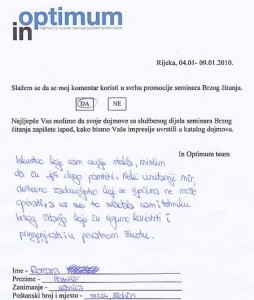 optimum
in
Rijeka, 04.01- 09.01.2010.
Slažem se da se moj komentar koristi u svrhu promocije seminara Brzog čitanja.
DA NE
Najljepše Vas molimo da svoje dojmove sa službenog dijela seminara Brzog
čitanja zapišete ispod, kako bismo Vaše impresije uvrstili u katalog dojmova.
In Optimum team
Iskustvo koje sam ovdje stekla, mislim
da ću još dugo pamtiti. Neki unutarnji mir
zadovoljstvo koji se riječima ne može
opisati, a uz sve to svladala sam i tehniku
brzog čitanja koju ću sigurno koristiti i
primjenjivati u privatnom životu.
Ime -
Prezime -
Zanimanje - učenica
Poštanski broj i mjesto -